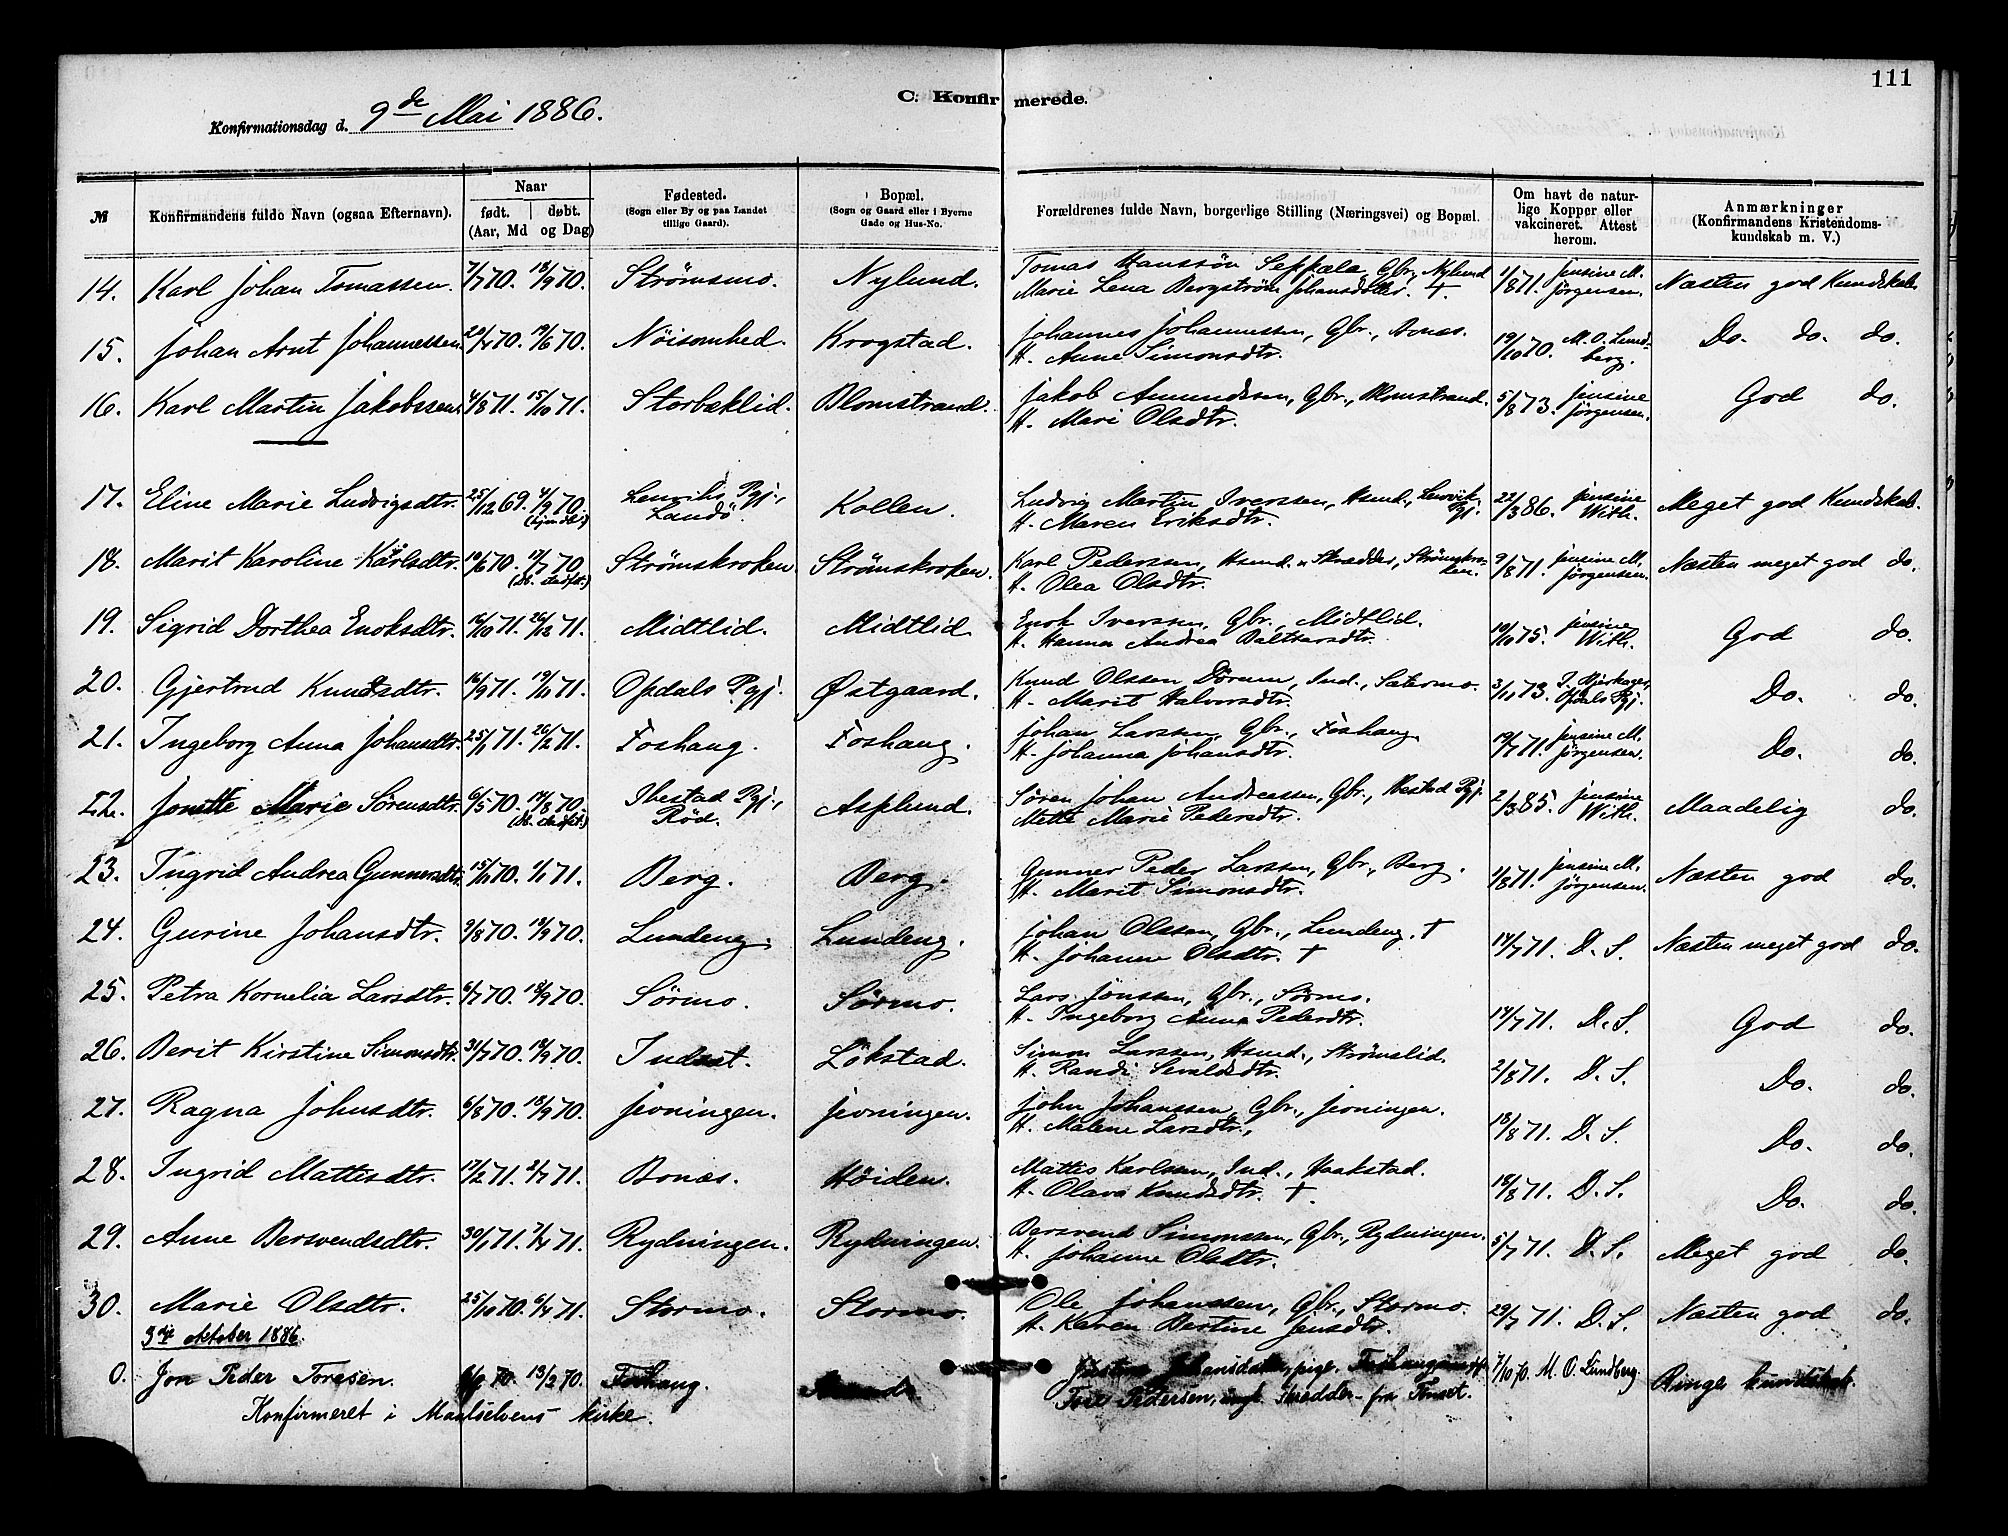 111
C. Konfirmerede.
Konfirmationsdag d. 9de Mai 1886.
№
Konfirmandens fulde Navn (ogsaa Efternavn).
Naar
født. døbt.
(Aar, Md og Dag)
Fødested.
(Sogn eller By og paa Landet tillige Gaard).
Bopæl.
(Sogn og Gaard eller i Byerne Gade og Hus-No.
Forældrenes fulde Navn, borgerlige Stilling (Næringsvei) og Bopæl.
Om havt de naturlige Kopper eller vakcineret. Attest herom.
Anmærkninger
(Konfirmandens Kristendomskundskab m. V.)
14. Karl Johan Tomassen. 7/7 70. 18/9 70. Strømsmo. Nylund. Tomas Hanssøn Seppala, Gbr, Nylund 1/8 71. Jensine M. Jørgensen. Næsten god Kundskab.
Marie Lena Bergstrøm Johansdatter. †.
15. Johan Arnt Johannessen 20/4 70. 19/6 70. Nöisomhed. Krogstad. Johannes Johannessen, Gbr., Bonæs. 19/10 70. M. O. Lundberg. Do. do. do.
H. Anne Simonsdtr.
16. Karl Martin Jakobssen. 4/8 71. 15/10 71. Storbæklid. Blomstrand. Jakob Amundsen, Gbr., Blomstrand. 5/8 73. Jensine Jørgensen. God do.
H. Mari Olsdtr.
17. Eline Marie Ludvigsdtr. 25/12 69. 4/9 70. Lenviks Pgj., Landö. Kollen. Ludvig Martin Iverssen, Hsmd., Lenvik Pgj. 22/3 86. Jensine With. Meget god Kundskab.
H. Maren Eriksdtr.
18. Marit Karoline Karlsdtr. 19/6 70. 17/7 70. Strömskroken. Strömskroken. Karl Pederssen, Hsmd. u Skrædder, Strömskroken. 9/8 71. Jensine M. Jørgensen. Næsten meget god do.
H. Olea Olsdtr.
19. Sigrid Dorthea Enoksdtr. 16/10 71. 26/12 71. Midtlid. Midtlid Enok Iverssen, Gbr., Midtlid. 10/10 75. Jensine With. God do.
H. Hanna Andrea Baltsersdtr.
20. Gjertrud Knudsdtr. 16/9 71. 19/10 71. Opdals Pgj. Østgaard. Knud Olssen Dörum, Ind., Sætermo. 3/11 73. Opdals Pgj. Do. do.
H. Marit Halvorsdtr.
21. Ingeborg Anna Johansdtr. 25/1 71. 26/2 71. Foshaug. Foshaug. Johan Larssen, Gbr., Foshaug. 19/7 71. Jensine M. Jørgensen. Do. do.
H. Johanna Johansdtr.
22. Jonette Marie Sörensdtr. 6/5 70. 14/8 70. Ibestad Pgj., Röd. Asplund. Sören Johan Andreassen, Gbr., Ibestad Pgj. 2/3 85. Jensine With. Maadelig do.
Mette Marie Pedersdtr.
23. Ingrid Andrea Gunnersdtr. 15/11 70. 1/1 71. Berg. Berg. Gunner Peder Larssen, Gbr., Berg. 1/8 71. Jensine M. Jørgensen. Næsten god do.
H. Marit Simonsdtr.
24. Gurine Johansdtr. 9/8 70. 18/9 70. Lundeng. Lundeng. Johan Olssen, Gbr., Lundeng. † 14/7 71. D. S. Næsten meget god do.
H. Johanne Olsdtr. †
25. Petra Kornelia Larsdtr. 6/7 70. 18/9 70. Sörmo. Sörmo. Lars Jonssen, Gbr., Sörmo. 14/7 71. D. S. God do.
H. Ingeborg Anna Pedersdtr.
26. Berit Kirstine Simonsdtr. 31/7 70. 18/9 70. Indset. Lökstad. Simon Larssen, Hsmd., Strömslid. 2/8 71. D. S. Do. do.
H. Randi Sevaldsdtr.
27. Ragna Johnsdtr. 6/8 70. 18/9 70. Jevningen. Jevningen. John Johanssen, Gbr., Jevningen. 18/8 71. D. S. Do. do.
H. Malene Larsdtr.,
28. Ingrid Mattisdtr. 17/2 71. 2/7 71. Bonæs. Höiden. Mattis Karlsen, Ind., Haakstad. 18/8 71. D. S. Do. do.
H. Olava Knudsdtr. †.
29. Anne Bersvendsdtr. 30/1 71. 7/4 71. Rydningen. Rydningen. Bersvend Simonssen, Gbr., Rydningen. 5/7 71. D. S. Meget god do.
H. Johanne Olsdtr.
30. Marie Olsdtr. 25/10 70. 6/4 71. Stormo. Stormo. Ole Johanssen, Gbr., Stormo. 29/7 71. D. S. Næsten god do.
H. Karen Bertine Jensdtr.
3die oktober 1886.
0. Jon Peder Toresen. 13/2 70. Foshaug. Johansdatter, pige. 7/10 70. M. O. Lundberg. Ringe kundskab.
Konfirmeret i Maalselvens kirke. Tore Pedersen, ungk. Skrædder fra Tønset.